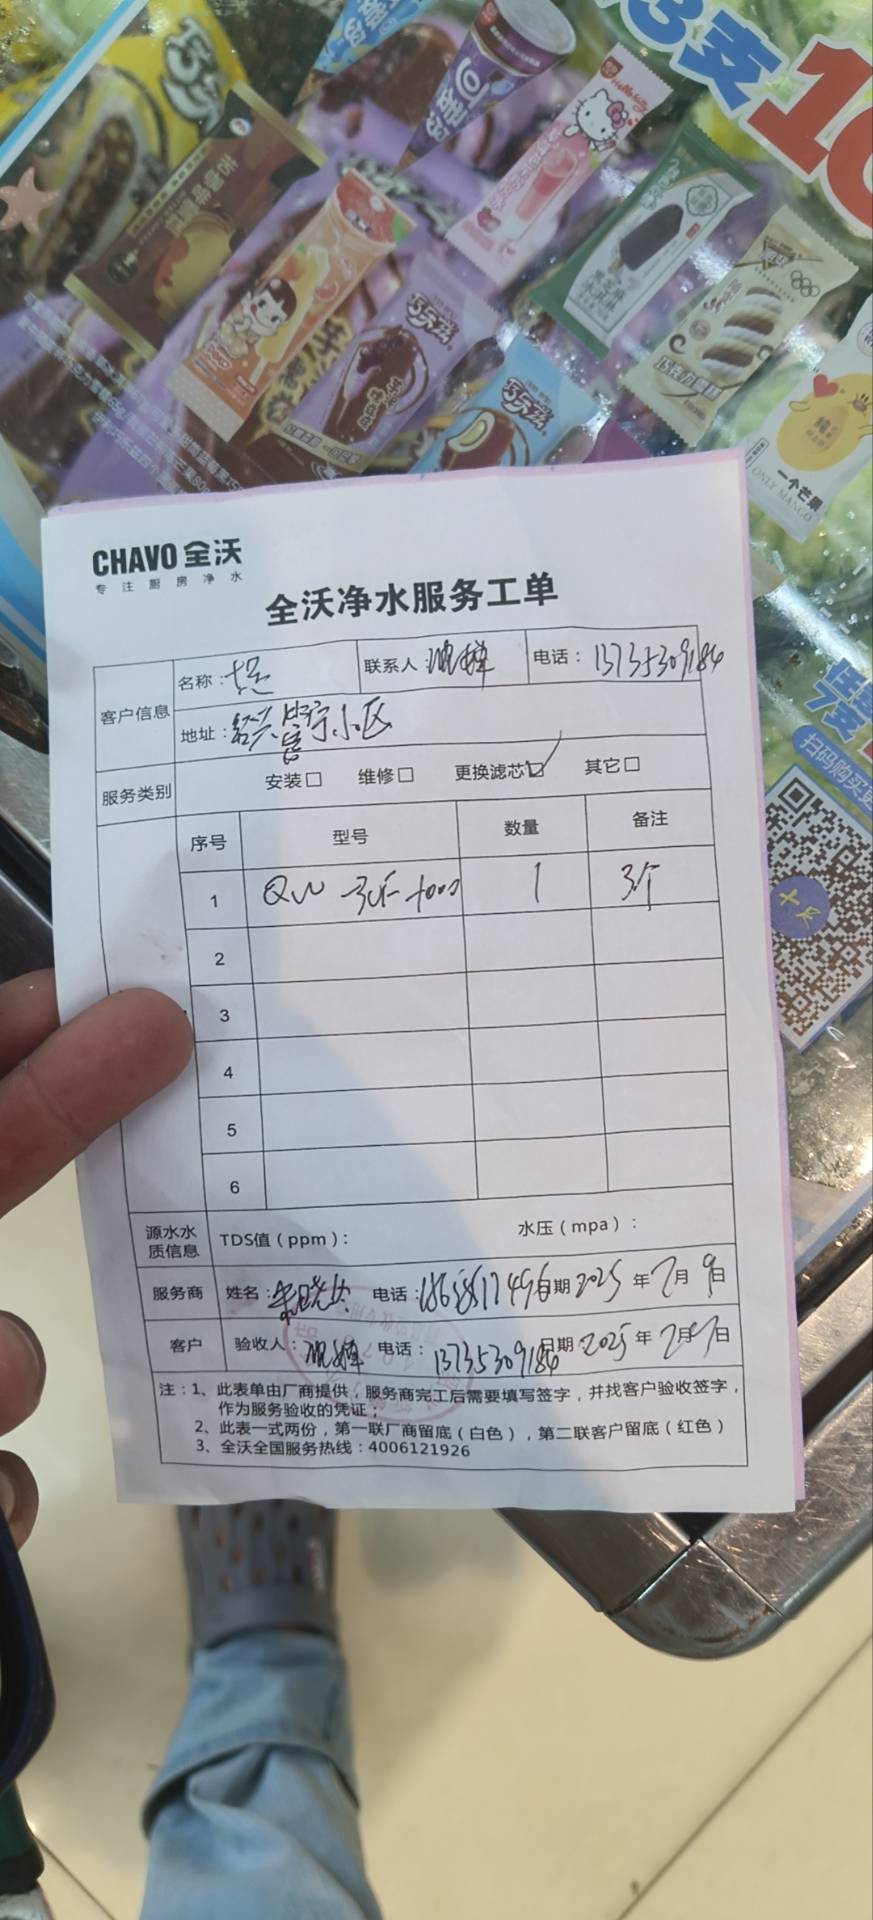 3支10
Hello Kitty
巧乐兹
巧乐兹
巧克力
一个芒果
ONLY MANGO
扫码购买更
十足
CHAVO 全沃
专注厨房净水
全沃净水服务工单
客户信息
名称：十足
联系人：
电话：13735309184
地址：绍兴 宁小区
服务类别
安装□ 维修□ 更换滤芯☑ 其它□
序号 型号 数量 备注
1 QW 1 3个
2
3
4
5
6
源水水质信息
TDS值（ppm）： 水压（mpa）：
服务商 姓名： 电话： 日期 2025 年 7月 9日
客户 验收人： 电话：13735309184 日期 2025 年 7月 日
注：1、此表单由厂商提供，服务商完工后需要填写签字，并找客户验收签字，
作为服务验收的凭证；
2、此表一式两份，第一联厂商留底（白色），第二联客户留底（红色）
3、全沃全国服务热线：4006121926